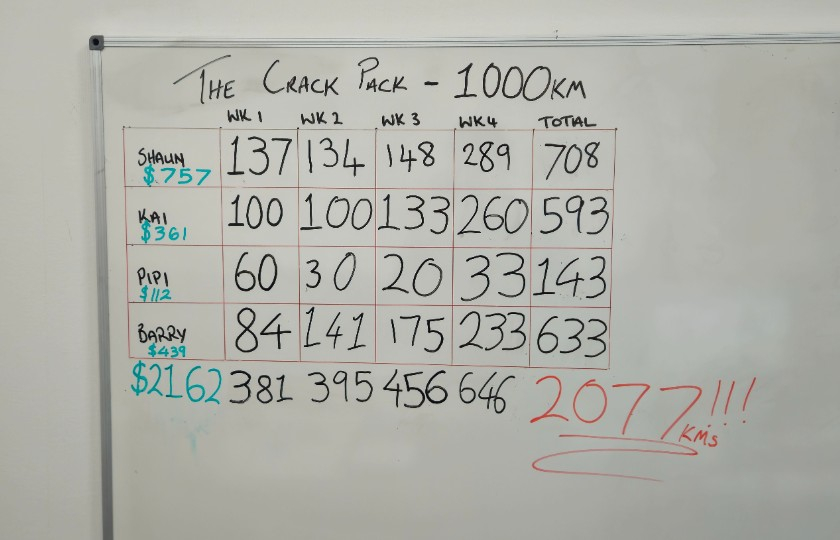 THE CRACK PACK - 1000KM
WK 1 WK 2 WK 3 WK4 TOTAL
SHAUN 137 134 148 289 708
$757
KAI 100 100 133 260 593
$361
PIPI 60 30 20 33 143
$112
BARRY 84 141 175 233 633
$439
$2162 381 395 456 646 2077!!!
KMs